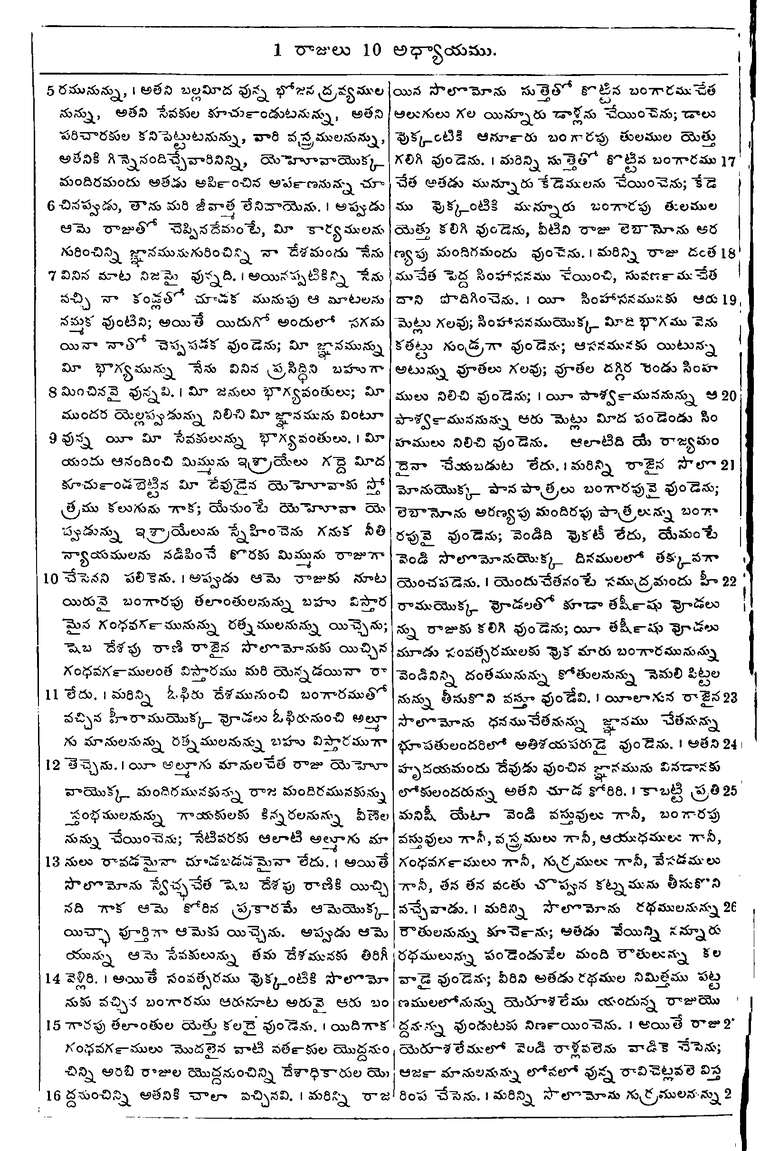 1 రాజులు 10 అధ్యాయము.
5 రమునున్ను, । అతని బల్లమీద వున్న భోజన ద్రవ్యముల
నున్ను, అతని సేవకుల కూచుండుటనున్ను, అతని
పరిచారకుల కనిపెట్టుటనున్ను, వారి వస్త్రములనున్ను,
అతనికి గిన్నెనందిచ్చేవారినిన్ని, యెహోవాయొక్క
మందిరమందు అతడు అర్పించిన అర్పణనున్ను చూ
6 చినప్పుడు, తాను మరి జీవాత్మ లేనిదాయెను. । అప్పుడు
ఆమె రాజుతో చెప్పినదేమంటే, మీ కార్యములను
గురించిన్ని జ్ఞానమునుగురించిన్ని నా దేశమందు నేను
7 వినిన మాట నిజమై వున్నది. । అయినప్పటికిన్ని నేను
వచ్చి నా కండ్లతో చూడక మునుపు ఆ మాటలను
నమ్మక వుంటిని; అయితే యిదుగో అందులో సగమ
యినా నాతో చెప్పపడక వుండెను; మీ జ్ఞానమున్ను
మీ భాగ్యమున్ను నేను వినిన ప్రసిద్ధిని బహుగా
8 మించినవై వున్నవి. । మీ జనులు భాగ్యవంతులు; మీ
ముందర యెల్లప్పుడున్ను నిలిచి మీ జ్ఞానమును వింటూ
9 వున్న యీ మీ సేవకులున్ను భాగ్యవంతులు. । మీ
యందు ఆనందించి మిమ్మును ఇశ్రాయేలు గద్దె మీద
కూచుండబెట్టిన మీ దేవుడైన యెహోవాకు స్తో
త్రము కలుగును గాక; యేమంటే యెహోవా యె
ప్పుడున్ను ఇశ్రాయేలును స్నేహించెను గనుక నీతి
న్యాయములను నడిపించే కొరకు మిమ్మును రాజుగా
10 చేసెనని పలికెను. । అప్పుడు ఆమె రాజుకు నూట
యిరువై బంగారపు తలాంతులనున్ను బహు విస్తార
మైన గంధవర్గమునున్ను రత్నములనున్ను యిచ్చెను;
షెబ దేశపు రాణి రాజైన సొలొమోనుకు యిచ్చిన
గంధవర్గములంత విస్తారము మరి యెన్నడయినా రా
11 లేదు. । మరిన్ని ఓఫిరు దేశమునుంచి బంగారముతో
వచ్చిన హీరాముయొక్క వొడలు ఓఫిరునుంచి అల్మూ
గు మానులనున్ను రత్నములనున్ను బహు విస్తారముగా
12 తెచ్చెను. । యీ అల్మూగు మానులచేత రాజు యెహో
వాయొక్క మందిరమునకున్ను రాజ మందిరమునకున్ను
స్తంభములనున్ను గాయకులకు కిన్నరలనున్ను వీణెల
నున్ను చేయించెను; నేటివరకు ఆలాటి అల్మూగు మా
13 నులు రావడమైనా చూడబడడమైనా లేదు. । అయితే
సొలొమోను స్వేచ్ఛచేత షెబ దేశపు రాణికి యిచ్చి
నది గాక ఆమె కోరిన ప్రకారమే ఆమెయొక్క
యిచ్ఛా పూర్తిగా ఆమెకు యిచ్చెను. అప్పుడు ఆమె
యున్ను ఆమె సేవకులున్ను తమ దేశమునకు తిరిగి
14 వెళ్లిరి. । అయితే సంవత్సరము వొక్కంటికి సొలొమో
నుకు వచ్చిన బంగారము ఆరునూట అరువై ఆరు బం
15 గారపు తలాంతుల యెత్తు కలదై వుండెను. । యిదిగాక
గంధవర్గములు మొదలైన వాటి వర్తకుల యొద్దనుం
చిన్ని అరబి రాజుల యొద్దనుంచిన్ని దేశాధికారుల యొ
16 ద్దనుంచిన్ని అతనికి చాలా వచ్చినవి. । మరిన్ని రాజ
యిన సొలొమోను సుత్తెతో కొట్టిన బంగారముచేత
అలుగులు గల యిన్నూరు డాళ్లను చేయించెను; డాలు
వొక్కంటికి ఆనూరు బంగారపు తులముల యెత్తు
గలిగి వుండెను. । మరిన్ని సుత్తెతో కొట్టిన బంగారము 17
చేత అతడు మున్నూరు కేడెములను చేయించెను; కేడె
ము వొక్కంటికి మున్నూరు బంగారపు తులముల
యెత్తు కలిగి వుండెను, వీటిని రాజు లెబానోను అర
ణ్యపు మందిరమందు వుంచెను. । మరిన్ని రాజు దంత 18
ముచేత పెద్ద సింహాసనము చేయించి, సువర్ణముచేత
దాని పొదిగించెను. । యీ సింహాసనమునకు ఆరు 19
మెట్లు గలవు; సింహాసనముయొక్క మీది భాగము వెను
కతట్టు గుండ్రగా వుండెను; ఆసనమునకు యిటున్ను
అటున్ను వూతలు గలవు; వూతల దగ్గిర రెండు సింహ
ములు నిలిచి వుండెను; । యీ పార్శ్వముననున్ను ఆ 20
పార్శ్వముననున్ను ఆరు మెట్లు మీద పండెండు సిం
హములు నిలిచి వుండెను. ఆలాటిది యే రాజ్యమం
దైనా చేయబడుట లేదు. । మరిన్ని రాజైన సొలొ 21
మోనుయొక్క పాన పాత్రలు బంగారపువై వుండెను;
లెబానోను అరణ్యపు మందిరపు పాత్రలున్ను బంగా
రపువై వుండెను; వెండిది వొకటీ లేదు, యేమంటే
వెండి సొలొమోనుయొక్క దినములలో తక్కువగా
యెంచపడెను. । యెందుచేతనంటే సముద్రమందు హీ 22
రాముయొక్క వొడలతో కూడా తర్షీషు వొడలు
న్ను రాజుకు కలిగి వుండెను; యీ తర్షీషు వొడలు
మూడు సంవత్సరములకు వొక మారు బంగారమునున్ను
వెండినిన్ని దంతమునున్ను కోతులనున్ను నెమలి పిట్టల
నున్ను తీసుకొని వస్తూ వుండేవి. । యీలాగున రాజైన 23
సొలొమోను ధనముచేతనున్ను జ్ఞానము చేతనున్ను
భూపతులందరిలో అతిశయపరుడై వుండెను. । అతని 24
హృదయమందు దేవుడు వుంచిన జ్ఞానమును వినడానకు
లోకులందరున్ను అతని చూడ కోరిరి. । కాబట్టి ప్రతి 25
మనిషీ యేటా వెండి వస్తువులు గానీ, బంగారపు
వస్తువులు గానీ, వస్త్రములు గానీ, ఆయుధములు గానీ,
గంధవర్గములు గానీ, గుర్రములు గానీ, వేసడములు
గానీ, తన తన వంతు చొప్పున కట్నమును తీసుకొని
వచ్చేవాడు. । మరిన్ని సొలొమోను రథములనున్ను 26
రౌతులనున్ను కూర్చెను; అతడు వేయిన్ని నన్నూరు
రథములున్ను పండెండువేల మంది రౌతులున్ను కల
వాడై వుండెను; వీరిని అతడు రథముల నిమిత్తము పట్ట
ణములలోనున్ను యెరూశలేము యందున్న రాజుయొ
ద్దనున్ను వుండుటకు నిర్ణయించెను. । అయితే రాజు 2
యెరూశలేములో వెండి రాళ్లవలెను వాడికె చేసెను;
ఆర్జ మానులనున్ను లోవలో వున్న రావిచెట్లవలె విస్త
రింప చేసెను. । మరిన్ని సొలొమోను గుర్రములనున్ను 2